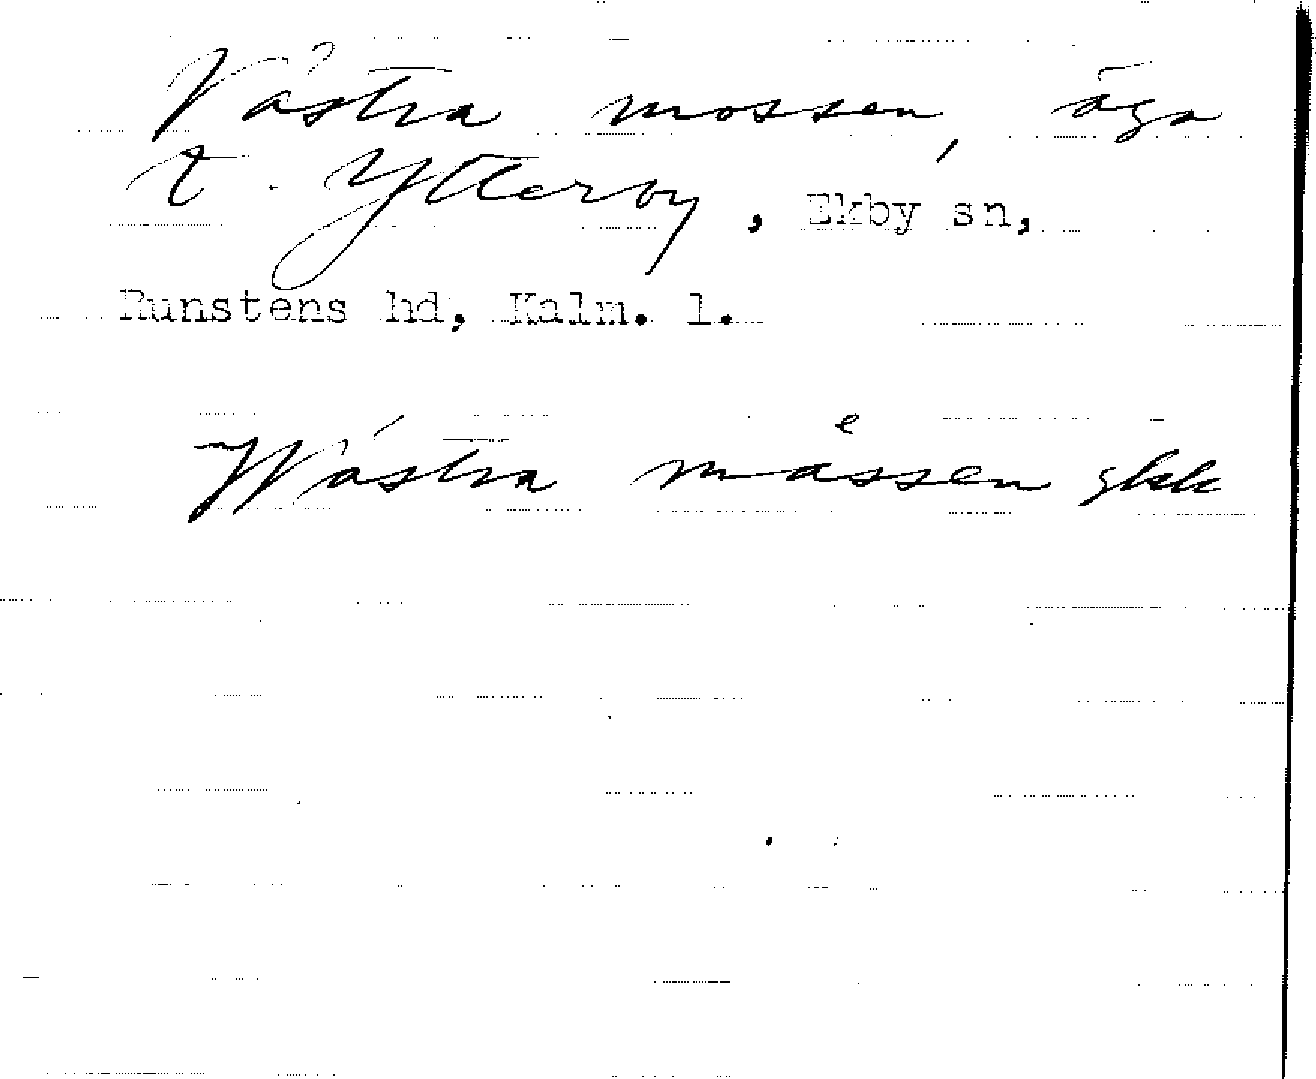 Västra mossen, äga
t. Ytterby, Ekby sn,
Runstens hd, Kalm. l.
Wästra måssen gkk